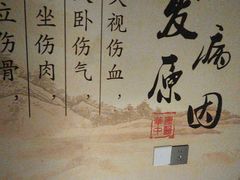 病因
发原
视伤血，
卧伤气，
坐伤肉，
立伤骨，